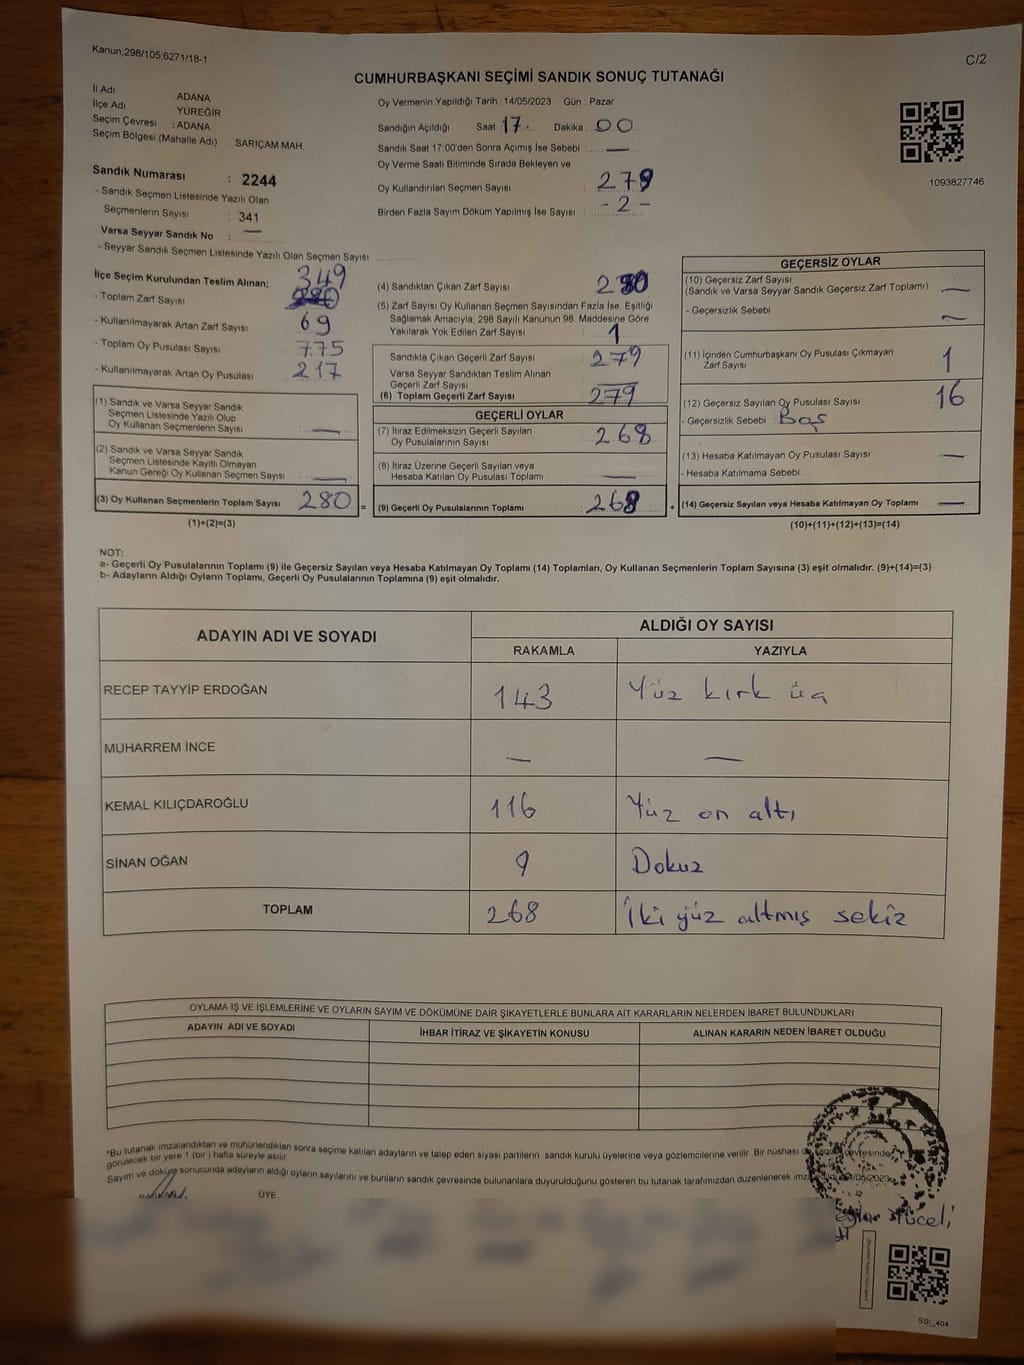 Kanun:298/105:6271/18-1
C/2
CUMHURBAŞKANI SEÇİMİ SANDIK SONUÇ TUTANAĞI
İl Adı ADANA
İlçe Adı YÜREĞİR
Seçim Çevresi : ADANA
Seçim Bölgesi (Mahalle Adı) : SARIÇAM MAH.
Oy Vermenin Yapıldığı Tarih : 14/05/2023 Gün : Pazar
Sandığın Açıldığı Saat 17 Dakika 00
Sandık Saat 17:00'den Sonra Açımış İse Sebebi : —
Oy Verme Saati Bitiminde Sırada Bekleyen ve
Oy Kullandırılan Seçmen Sayısı : 279
Birden Fazla Sayım Döküm Yapılmış İse Sayısı : - 2 -
1093827746
Sandık Numarası : 2244
- Sandık Seçmen Listesinde Yazılı Olan
Seçmenlerin Sayısı : 341
Varsa Seyyar Sandık No : —
- Seyyar Sandık Seçmen Listesinde Yazılı Olan Seçmen Sayısı
İlçe Seçim Kurulundan Teslim Alınan;
349
- Toplam Zarf Sayısı : 280
- Kullanılmayarak Artan Zarf Sayısı : 69
- Toplam Oy Pusulası Sayısı : 775
- Kullanılmayarak Artan Oy Pusulası : 217
(1) Sandık ve Varsa Seyyar Sandık
Seçmen Listesinde Yazılı Olup
Oy Kullanan Seçmenlerin Sayısı : —
(2) Sandık ve Varsa Seyyar Sandık
Seçmen Listesinde Kayıtlı Olmayan
Kanun Gereği Oy Kullanan Seçmen Sayısı : —
(3) Oy Kullanan Seçmenlerin Toplam Sayısı 280 =
(1)+(2)=(3)
(4) Sandıktan Çıkan Zarf Sayısı : 280
(5) Zarf Sayısı Oy Kullanan Seçmen Sayısından Fazla İse, Eşitliği
Sağlamak Amacıyla; 298 Sayılı Kanunun 98. Maddesine Göre
Yakılarak Yok Edilen Zarf Sayısı : 1
Sandıkta Çıkan Geçerli Zarf Sayısı : 279
Varsa Seyyar Sandıktan Teslim Alınan
Geçerli Zarf Sayısı : —
(6) Toplam Geçerli Zarf Sayısı : 279
GEÇERLİ OYLAR
(7) İtiraz Edilmeksizin Geçerli Sayılan
Oy Pusulalarının Sayısı : 268
(8) İtiraz Üzerine Geçerli Sayılan veya
Hesaba Katılan Oy Pusulası Toplamı : —
(9) Geçerli Oy Pusulalarının Toplamı : 268 +
GEÇERSİZ OYLAR
(10) Geçersiz Zarf Sayısı
(Sandık ve Varsa Seyyar Sandık Geçersiz Zarf Toplamı) : —
- Geçersizlik Sebebi : —
(11) İçinden Cumhurbaşkanı Oy Pusulası Çıkmayan
Zarf Sayısı : 1
(12) Geçersiz Sayılan Oy Pusulası Sayısı : 16
- Geçersizlik Sebebi : Boş
(13) Hesaba Katılmayan Oy Pusulası Sayısı : —
- Hesaba Katılmama Sebebi :
(14) Geçersiz Sayılan veya Hesaba Katılmayan Oy Toplamı : —
(10)+(11)+(12)+(13)=(14)
NOT:
a- Geçerli Oy Pusulalarının Toplamı (9) ile Geçersiz Sayılan veya Hesaba Katılmayan Oy Toplamı (14) Toplamları, Oy Kullanan Seçmenlerin Toplam Sayısına (3) eşit olmalıdır. (9)+(14)=(3)
b- Adayların Aldığı Oyların Toplamı, Geçerli Oy Pusulalarının Toplamına (9) eşit olmalıdır.
ADAYIN ADI VE SOYADI
ALDIĞI OY SAYISI
RAKAMLA YAZIYLA
RECEP TAYYİP ERDOĞAN 143 Yüz kırk üç
MUHARREM İNCE — —
KEMAL KILIÇDAROĞLU 116 Yüz on altı
SİNAN OĞAN 9 Dokuz
TOPLAM 268 İki yüz altmış sekiz
OYLAMA İŞ VE İŞLEMLERİNE VE OYLARIN SAYIM VE DÖKÜMÜNE DAİR ŞİKAYETLERLE BUNLARA AİT KARARLARIN NELERDEN İBARET BULUNDUKLARI
ADAYIN ADI VE SOYADI İHBAR İTİRAZ VE ŞİKAYETİN KONUSU ALINAN KARARIN NEDEN İBARET OLDUĞU
*Bu tutanak imzalandıktan ve mühürlendikten sonra seçime katılan adayların ve talep eden siyasi partilerin sandık kurulu üyelerine veya gözlemcilerine verilir. Bir nüshası da sandık çevresinde
görülecek bir yere 1 (bir ) hafta süreyle asılır.
Sayım ve döküm sonucunda adayların aldığı oyların sayılarını ve bunların sandık çevresinde bulunanlara duyurulduğunu gösteren bu tutanak tarafımızdan düzenlenerek
BAŞKAN ÜYE
SSI_404